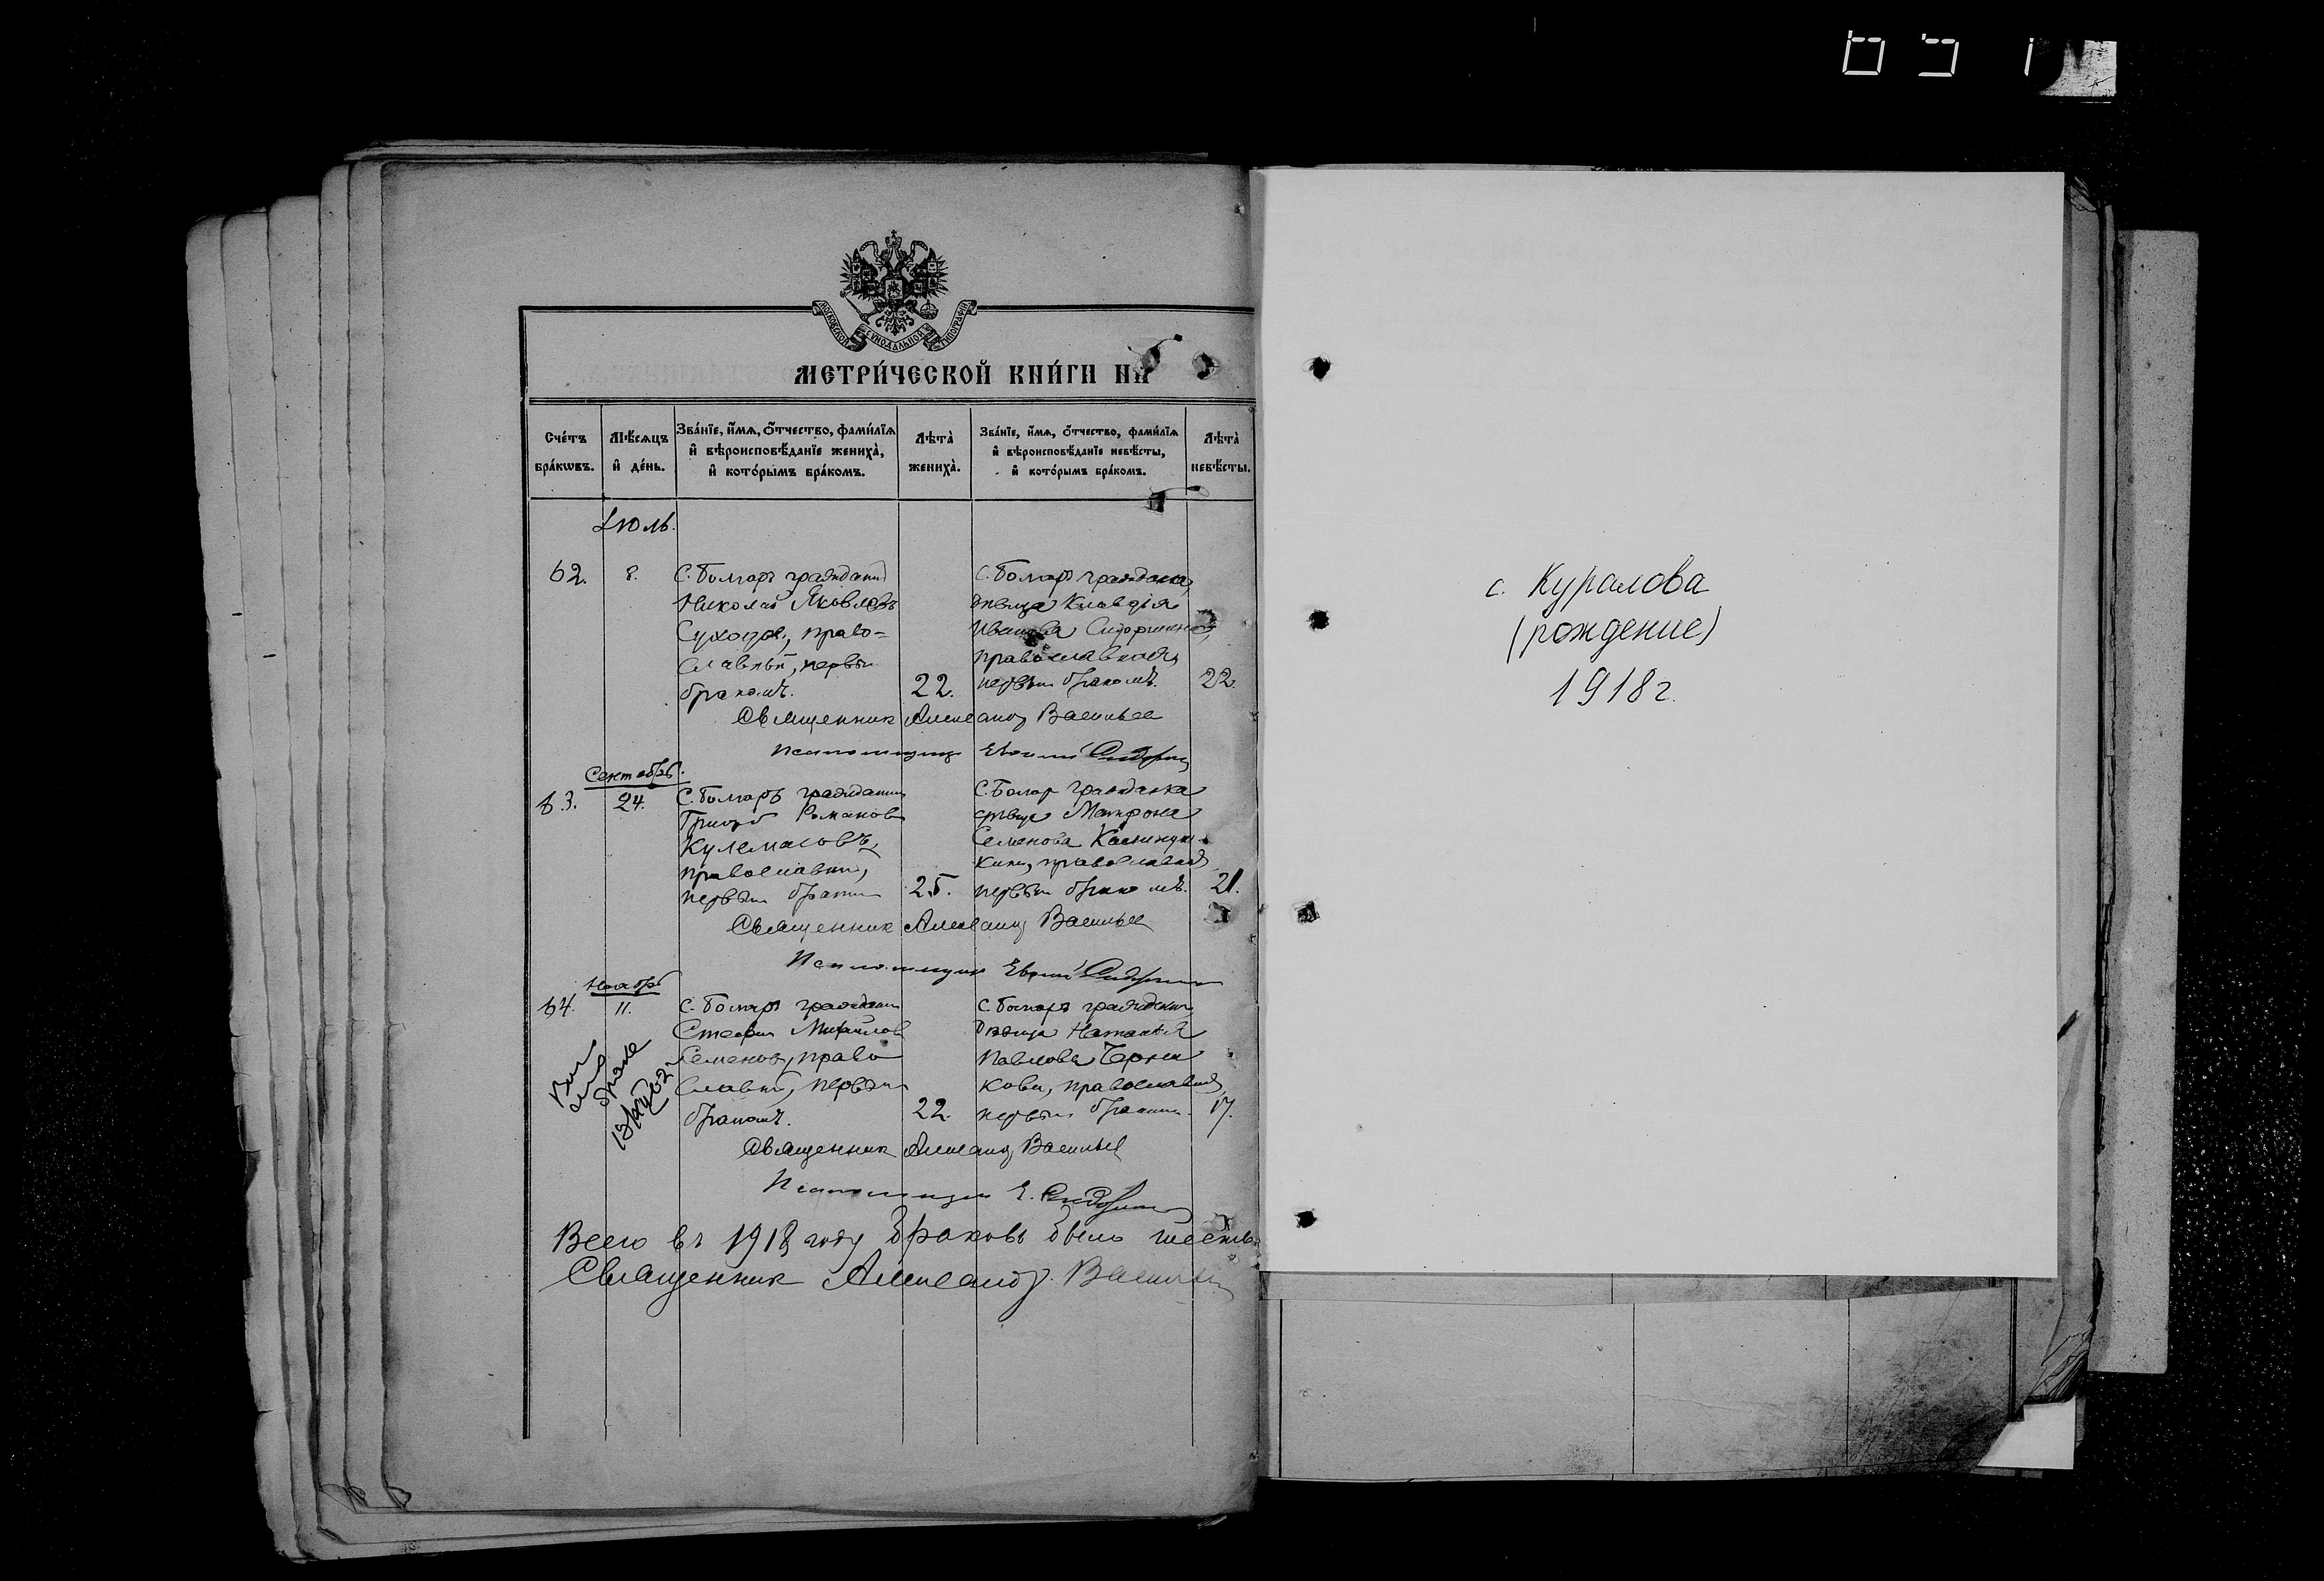 МОСКОВСКОЙ СѴНОДАЛЬНОЙ ТИПОГРАФІИ
МЕТРИ́ЧЕСКОЙ КНИ́ГИ НА
Сче́тъ бра́кωвъ.
Мѣ́сѧцъ и҆ де́нь.
Зва́нїе, и҆́мѧ, ѻ҆́тчество, фами́лїѧ и҆ вѣроисповѣ́данїе жениха̀, и҆ кото́рымъ бра́комъ.
Лѣта̀ жениха̀.
Зва́нїе, и҆́мѧ, ѻ҆́тчество, фами́лїѧ и҆ вѣроисповѣ́данїе невѣ́сты, и҆ кото́рымъ бра́комъ.
Лѣта̀ невѣ́сты.
Іюль.
62. 8.
С. Болгаръ гражданин
Николай Яковлевъ
право=
славный, первым
бракомъ. 22.
С. Болгаръ гражданка,
девица Клавдія
Иванова
православная,
первым бракомъ. 22.
Священник Александ Васильев
Псаломщик Сидорин
Сентябрь.
63. 24.
С. Болгаръ гражданин
Григор Романов
Кулемасовъ,
православный,
первым браком 25.
С. Болгар гражданка
девица Матрона
Семенова
православная
первым бракомъ. 21.
Священник Александ Васильев
Псаломщик Сидорин
Ноябрь
64. 11.
С. Болгаръ гражданин
Стефан Михайлов
Семенов, право
славный, первым
бракомъ. 22.
С. Болгаръ гражданка
девица Наталья
Павлова
православная,
первым браком. 17.
браке
Священник Александ Васильев
Псаломщик Е. Сидорин
Всего въ 1918 году браковъ было
Священник Александ. Васильев
с. Куралова
(рождение)
1918 г.